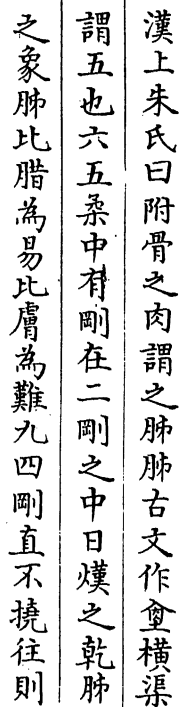 漢上朱氏曰附骨之肉謂之胏胏古文作㿽橫渠
謂五也六五柔中有剛在二剛之中日熯之乾胏
之象胏比腊為易比膚為難九四剛直不撓往則